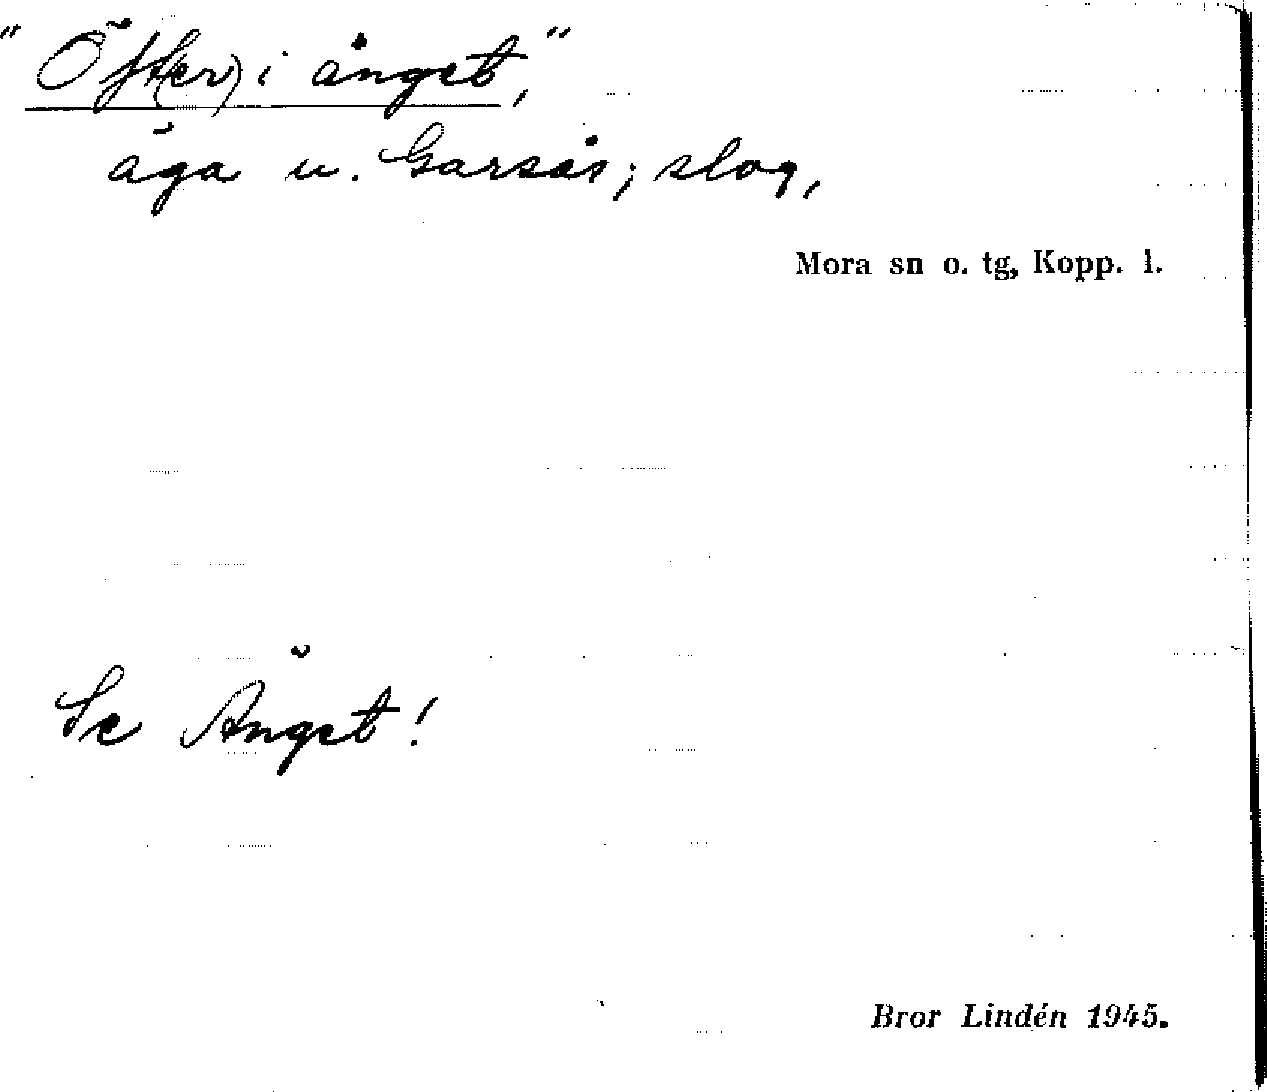 "Öft(er) i ånget,"
äga u. Garsås; slog,
Mora sn o. tg, Kopp. l.
Se Änget!
Bror Lindén 1945.